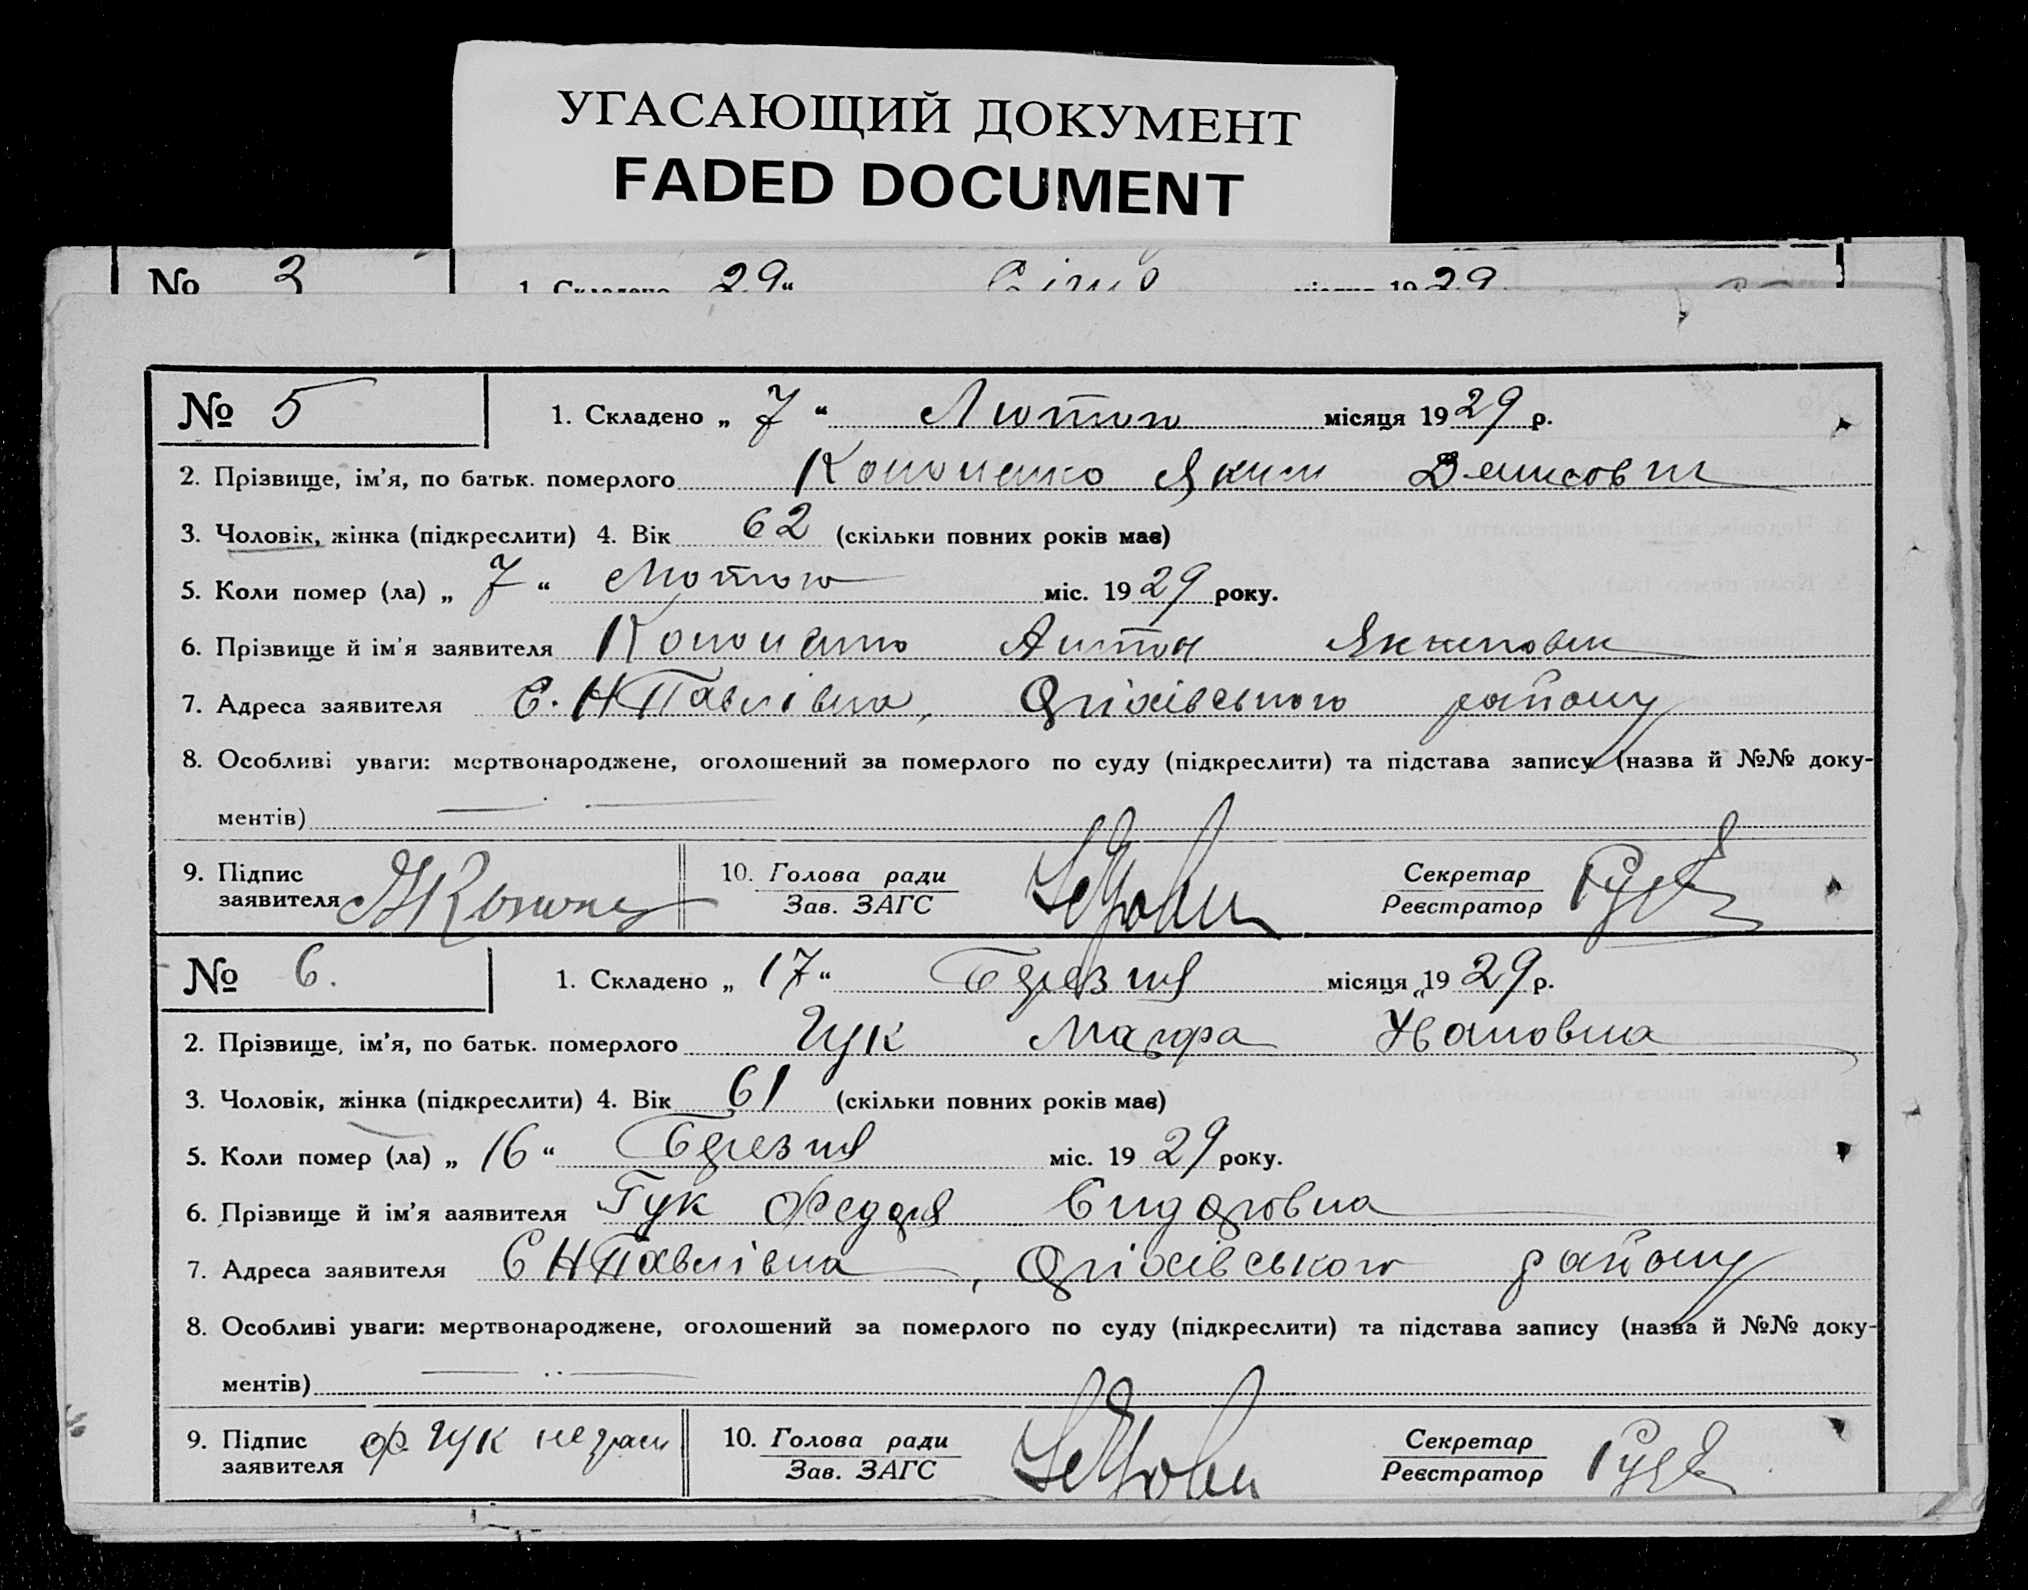 УГАСАЮЩИЙ ДОКУМЕНТ
FADED DOCUMENT
№ 3 1. Складено 29 " Січня місяця 1929
№ 5 1. Складено „ 7 “ Лютого місяця 1929 р.
2. Прізвище, ім'я, по батьк. померлого Кононенко Яким Денисович
3. Чоловік, жінка (підкреслити) 4. Вік 62 (скільки повних років має)
5. Коли помер (ла) „ 7 “ Лютого міс. 1929 року.
6. Прізвище й ім'я заявителя Кононенко Антон Якимович
7. Адреса заявителя С. Н Павлівка, Оріхівського району
8. Особливі уваги: мертвонароджене, оголошений за померлого по суду (підкреслити) та підстава запису (назва й №№ доку-
ментів)
9. Підпис заявителя 10. Голова ради Секретар
Зав. ЗАГС Реєстратор
№ 6. 1. Складено „ 17 “ Березня місяця 1929 р.
2. Прізвище, ім'я, по батьк. померлого Гук Мавра Ивановна
3. Чоловік, жінка (підкреслити) 4. Вік 61 (скільки повних років має)
5. Коли помер (ла) „ 16 “ Березня міс. 1929 року.
6. Прізвище й ім'я ааявителя Гук Федора Сидоровна
7. Адреса заявителя С Н Павлівка, Оріхівського району
8. Особливі уваги: мертвонароджене, оголошений за померлого по суду (підкреслити) та підстава запису (назва й №№ доку-
ментів)
9. Підпис заявителя Ф. Гук неграм 10. Голова ради Секретар
Зав. ЗАГС Реєстратор